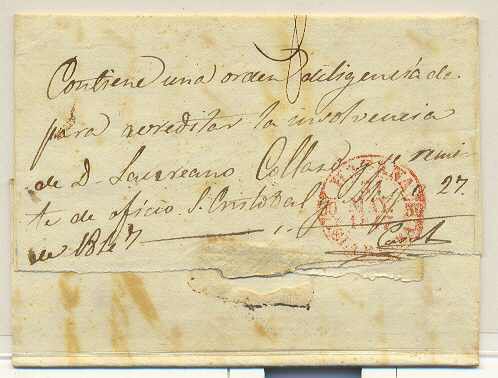 Contiene una orden diligenciada
para acreditar la insolvencia
de D. Laureano Collazo y se remi-
te de oficio S. Cristobal 27
de 1847